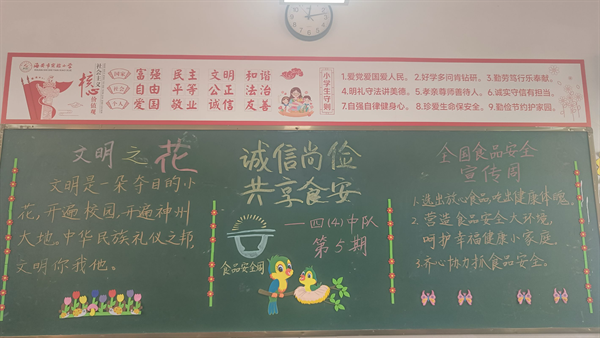 社会主义
核心
价值观
国家
富强 民主 文明 和谐
社会
自由 平等 公正 法治
个人
爱国 敬业 诚信 友善
小学生守则
1.爱党爱国爱人民。 2.好学多问肯钻研。 3.勤劳笃行乐奉献。
4.明礼守法讲美德。 5.孝亲尊师善待人。 6.诚实守信有担当。
7.自强自律健身心。 8.珍爱生命保安全。 9.勤俭节约护家园。
文明之花
文明是一朵夺目的小
花,开遍校园,开遍神州
大地,中华民族礼仪之邦,
文明你我他。
诚信尚俭
共享食安
——四(4)中队
第5期
食品安全周
全国食品安全
宣传周
1.选出放心食品,吃出健康体魄,
2.营造食品安全大环境,
呵护幸福健康小家庭,
3.齐心协力抓食品安全。